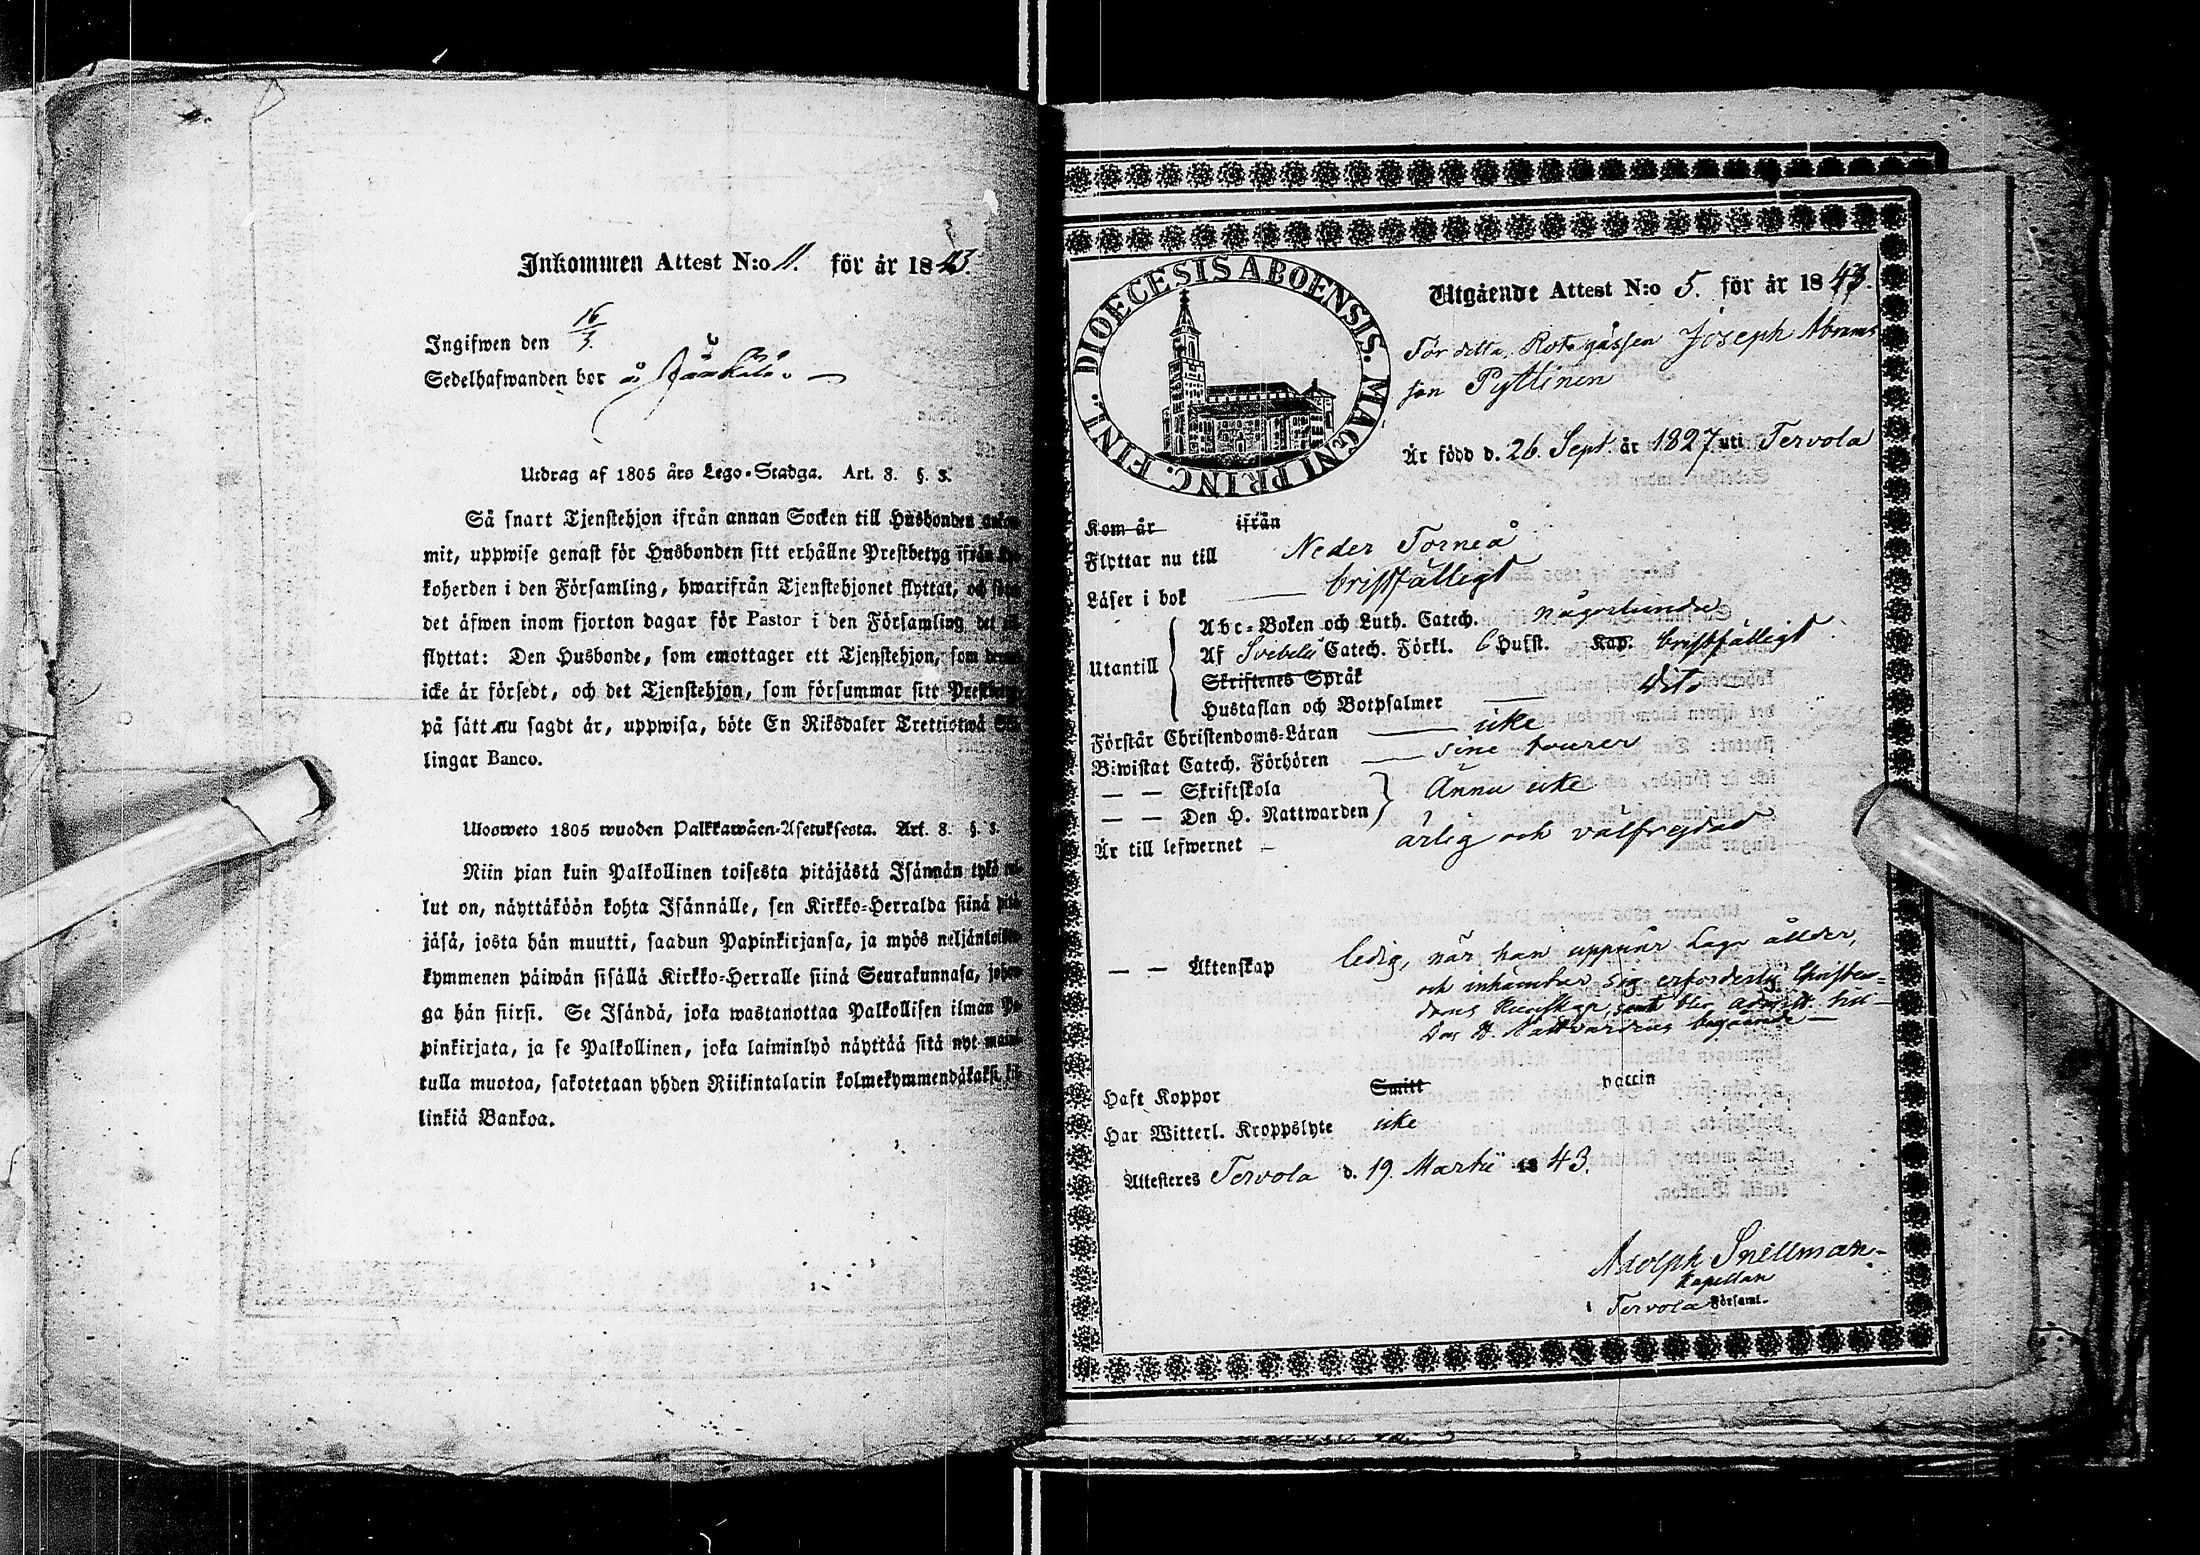 Inkommen Attest N:o 11. för år 1843.
Ingifwen den 16/3.
Sedelhafwanden bor å
Utdrag af 1805 års Lego-Stadga. Art. 8. §. 3.
Så snart Tjenstehjon ifrån annan Socken till Husbonden
mit, uppwise genast för Husbonden sitt erhållne Prestbetyg ifrån
koherden i den Församling, hwarifrån Tjenstehjonet flyttat, och
det äfwen inom fjorton dagar för Pastor i den Församling det
flyttat: Den Husbonde, som emottager ett Tjenstehjon, som
icke är försedt, och det Tjenstehjon, som försummar sitt
på sätt nu sagdt är, uppwisa, böte En Riksdaler Trettiotwå
lingar Banco.
Ulosweto 1805 wuoden Palkkawäen-Asetuksesta. Art. 8. §. 3.
Niin pian kuin Palkollinen toisesta pitäjästä Isännän tykö
lut on, näyttäköön kohta Isännälle, sen Kirkko-Herralda siinä
jäsä, josta hän muutti, saadun Papinkirjansa, ja myös
kymmenen päiwän sisällä Kirkko-Herralle siinä Seurakunnasa,
ga hän siirsi. Se Isändä, joka wastanottaa Palkollisen ilman
pinkirjata, ja se Palkollinen, joka laiminlyö näyttää sitä nyt
tulla muotoa, sakotetaan yhden Riikintalarin kolmekymmendäkaksi
linkiä Bankoa.
DIOECESIS ABOENSIS. MAGNI PRINC. FINL.
Utgående Attest N:o 5. för år 1843.
För detta Rotegåssen Joseph Abrams
son Pyttinen
Är född d. 26. Sept. år 1827. uti Tervola
Kom år ifrån
Flyttar nu till Neder Torneå
Läser i bok bristfälligt
Utantill
Abc-Boken och Luth. Catech. någorlunda
Af Svebeli Catech. Förkl. 6 Hufst. Kap. bristfälligt
Skriftenes Språk
Hustaflan och Botpsalmer dito
Förstår Christendoms-Läran icke
Biwistat Catech. Förhören sine tourer
— — Skriftskola
— — Den H. Nattwarden
Ännu icke
Är till lefwernet ärlig och välfrejdad
— — Äktenskap ledig, när han uppnår Laga ållder,
och inhämtar sig erforderlig Christen-
doms Kunskap, samt blir admitt. till
Den H. Nattvardens begående
Haft Koppor Smitt vaccin
Har Witterl. Kroppslyte icke
Attesteres Tervola d. 19. Martii 1843.
Adolph Snellman
Kapellan
i Tervola Församl.